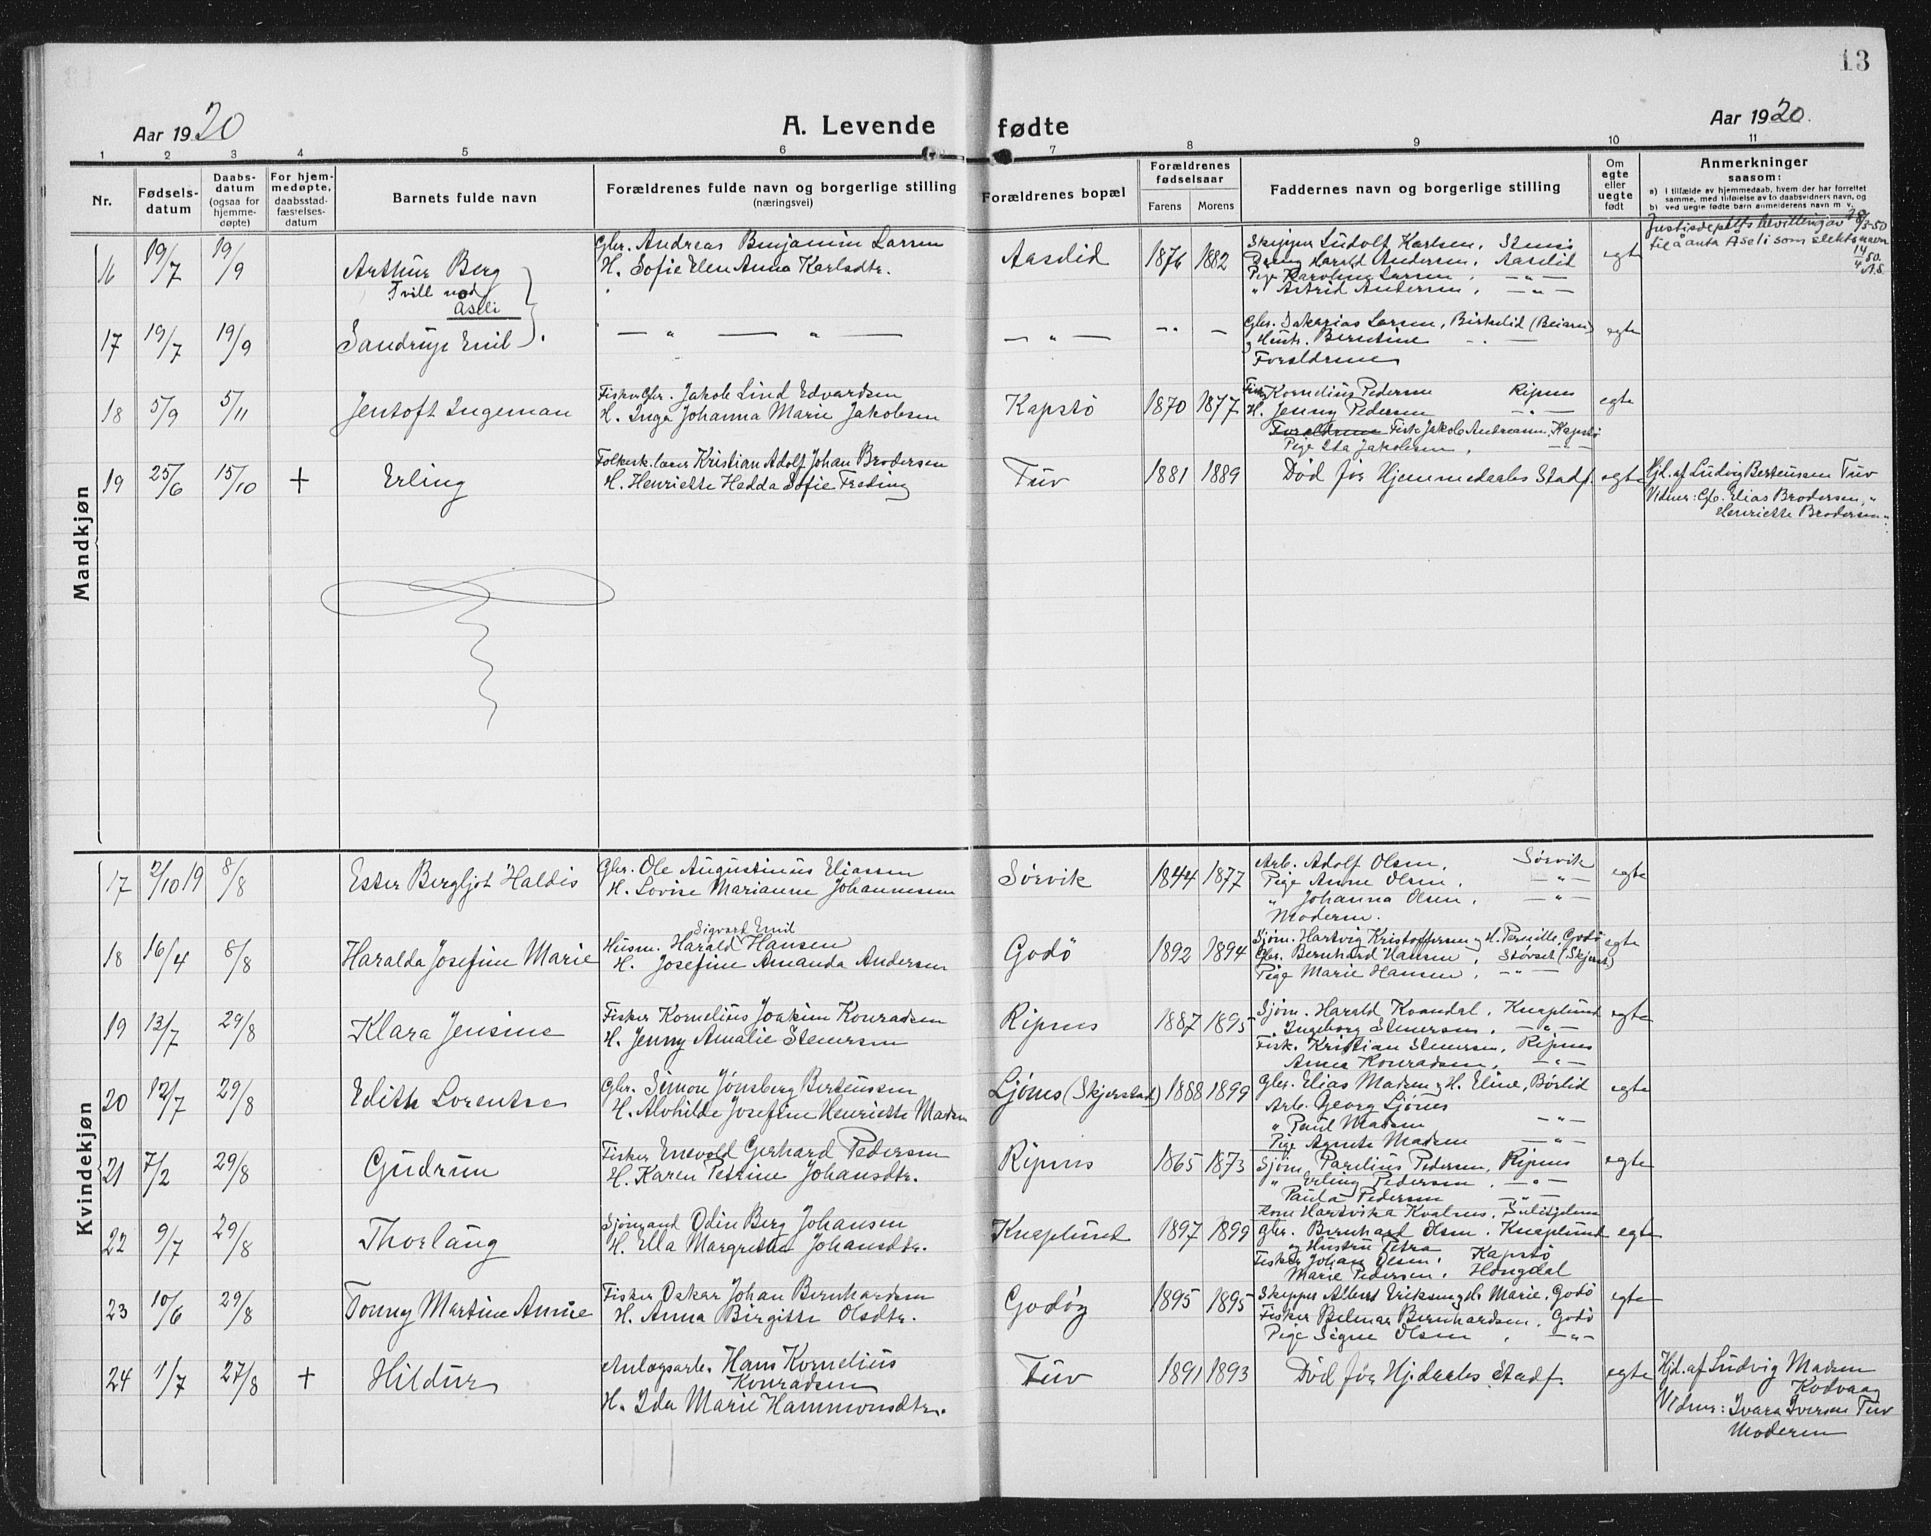 13
Aar 1920
A. Levende fødte
Aar 1920.
1 2 3 4 5 6 7 8 9 10 11
Nr.
Fødsels-
datum
Daabs-
datum
(ogsaa for
hjemme-
døpte)
For hjem-
medøpte,
daabsstad-
fæstelses-
datum
Barnets fulde navn
Forældrenes fulde navn og borgerlige stilling
(næringsvei)
Forældrenes bopæl
Forældrenes
fødselsaar
Farens Morens
Faddernes navn og borgerlige stilling
Om
egte
eller
uegte
født
Anmerkninger
saasom:
a) I tilfælde av hjemmedaab, hvem der har forrettet
samme, med tilføielse av to daabsvidners navn, og
b) ved uegte fødte barn anmelderens navn m. v.
Mandkjøn
16 19/7 19/9 Arthur Berg
Tvill
Aseli
Gbr. Andreas Benjamin Larsen
H. Sofie Elen Anna Karlsdtr.
Aaselid 1876 1882
Skipper Ludolf Karlsen,
Harald Andersen, Aaselid
Pige Karoline Larsen, — " —
" Astrid Andersen, — " —
egte
Justisdeptets bevilling av
til å anta Åseli som slektsnavn
17 19/7 19/9 Sandrup Emil
— " — " —
— " —
Gbr. Sakarias Larsen, Birkelid (Beiarn)
og Hustr. Berntine — " —
Forældrene
egte
18 5/9 5/11 Jentoft Ingeman
Fisker Gbr. Jakob Lind Edvardsen
H. Inga Johanna Marie Jakobsen
Kapstø 1870 1877
Fisk. Kornelius Pedersen Ripnes
H. Jenny Pedersen — " —
Forældrene Fisk. Jakob Andreassen, Kapstø
Pige Ida Jakobsen, — " —
egte
19 25/6 15/10 + Erling
Folkesk. lærer Kristian Adolf Johan Brodersen
H. Henriette Hedda Sofie Freding
Tuv 1881 1889
Død før Hjemmedaabs Stadf.
egte
Hjd. af Ludvig Berteussen Tuv
Vidner: Gb. Elias Brodersen, "
Henriette Brodersen "
Kvindekjøn
17 2/10 19 8/8 Ester Bergljot Haldis
Gbr. Ole Augustinus Eliassen
H. Lovise Marianne Johannesen
Sørvik 1844 1877
Arb. Adolf Olsen, Sørvik
Pige Anne Olsen, — " —
" Johanna Olsen, — " —
Moderen.
egte
18 16/4 8/8 Haralda Josefine Marie
Sigvart Emil
Husm. Harald Hansen
H. Josefine Amanda Andersen
Godø 1892 1894
Sjøm. Hartvig Kristoffersen og H. Pernille, Godø
Gbr. Bernhard Hansen, Støvset (Skjerst.)
Pige Marie Hansen, — " —
egte
19 13/7 29/8 Klara Jensine
Fisker Kornelius Joakim Konradsen
H. Jenny Amalie Stenersen
Ripnes 1887 1895
Sjøm. Harald Kvandal, Knaplund
Ingeborg Stenersen, — " —
Fisk. Kristian Stenersen, Ripnes
Anna Konradsen, — " —
egte
20 12/7 29/8 Edith Lorentse
Gbr. Simon Jønsberg Berteussen
H. Alvhilde Josefine Henriette Madsen
Ljønes (Skjerstad) 1888 1899
Gbr. Elias Madsen og H. Eline, Børlid
Arb. Georg Ljønes
" Paul Madsen — " —
Pige Agnete Madsen — " —
egte
21 7/2 29/8 Gudrun
Fisker Enevold Gerhard Pedersen
H. Karen Petrine Johansdtr.
Ripnes 1865 1873
Sjøm. Parelius Pedersen, Ripnes
" Erling Pedersen, — " —
Paula Pedersen — " —
Kone Hartvika Kvalnes, Sulitjelma
egte
22 9/7 29/8 Thorlaug
Sjømand Odin Berg Johansen
H. Ella Margrethe Johansdtr.
Knaplund 1897 1899
Gbr. Bernhard Olsen, Knaplund
og Hustru Petra
Fisker Johan Olsen, Kapstø
Marie Pedersen, Hongdal
egte
23 10/6 29/8 Tonny Martine Annie
Fisker Oskar Johan Bernhardsen
H. Anna Birgitte Olsdtr.
Godøy 1895 1895
Skipper Albert Eriksen og H. Marie, Godø
Fisker Belmar Bernhardsen, Godø
Pige Signe Olsen, — " —
egte
24 11/7 27/8 + Hildur
Anlægsarb. Hans Kornelius
Konradsen
H. Ida Marie Hammonsdtr.
Tuv 1891 1893
Død før Hj.daabs Stadf.
egte
Hjd. af Ludvig Madsen
Kodvaag
Vidner: Ivara Iversen Tuv
Moderen